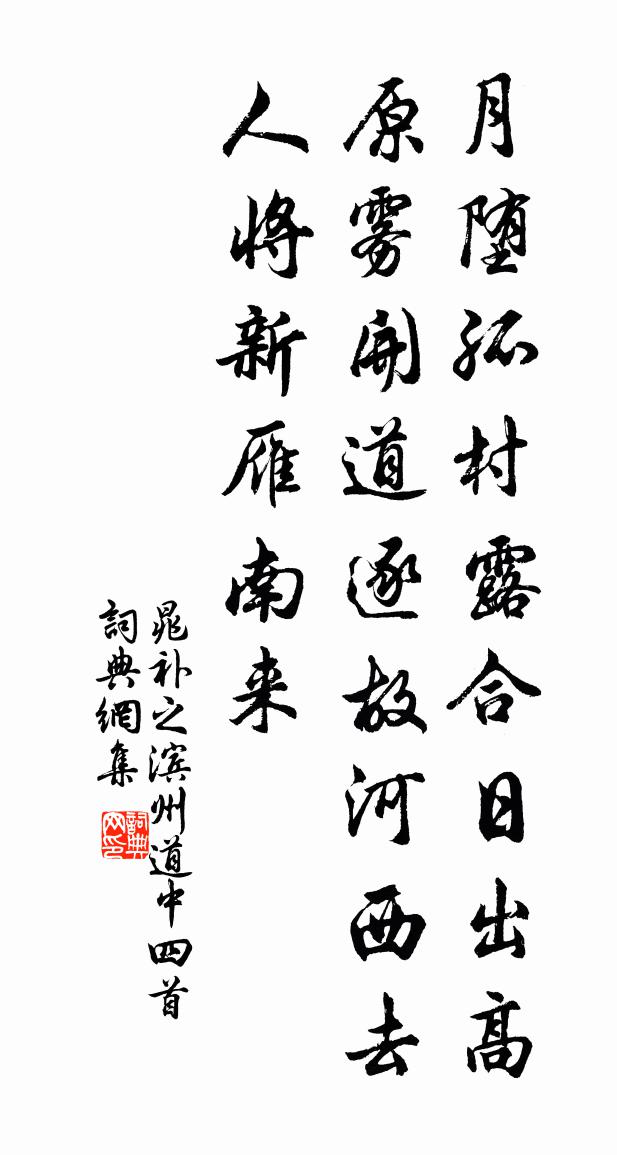 月堕孤村露合日出高
原雾開道逐故河西去
人将新雁南来
晁补之滨州道中四首
詞典網集
詞典
网印